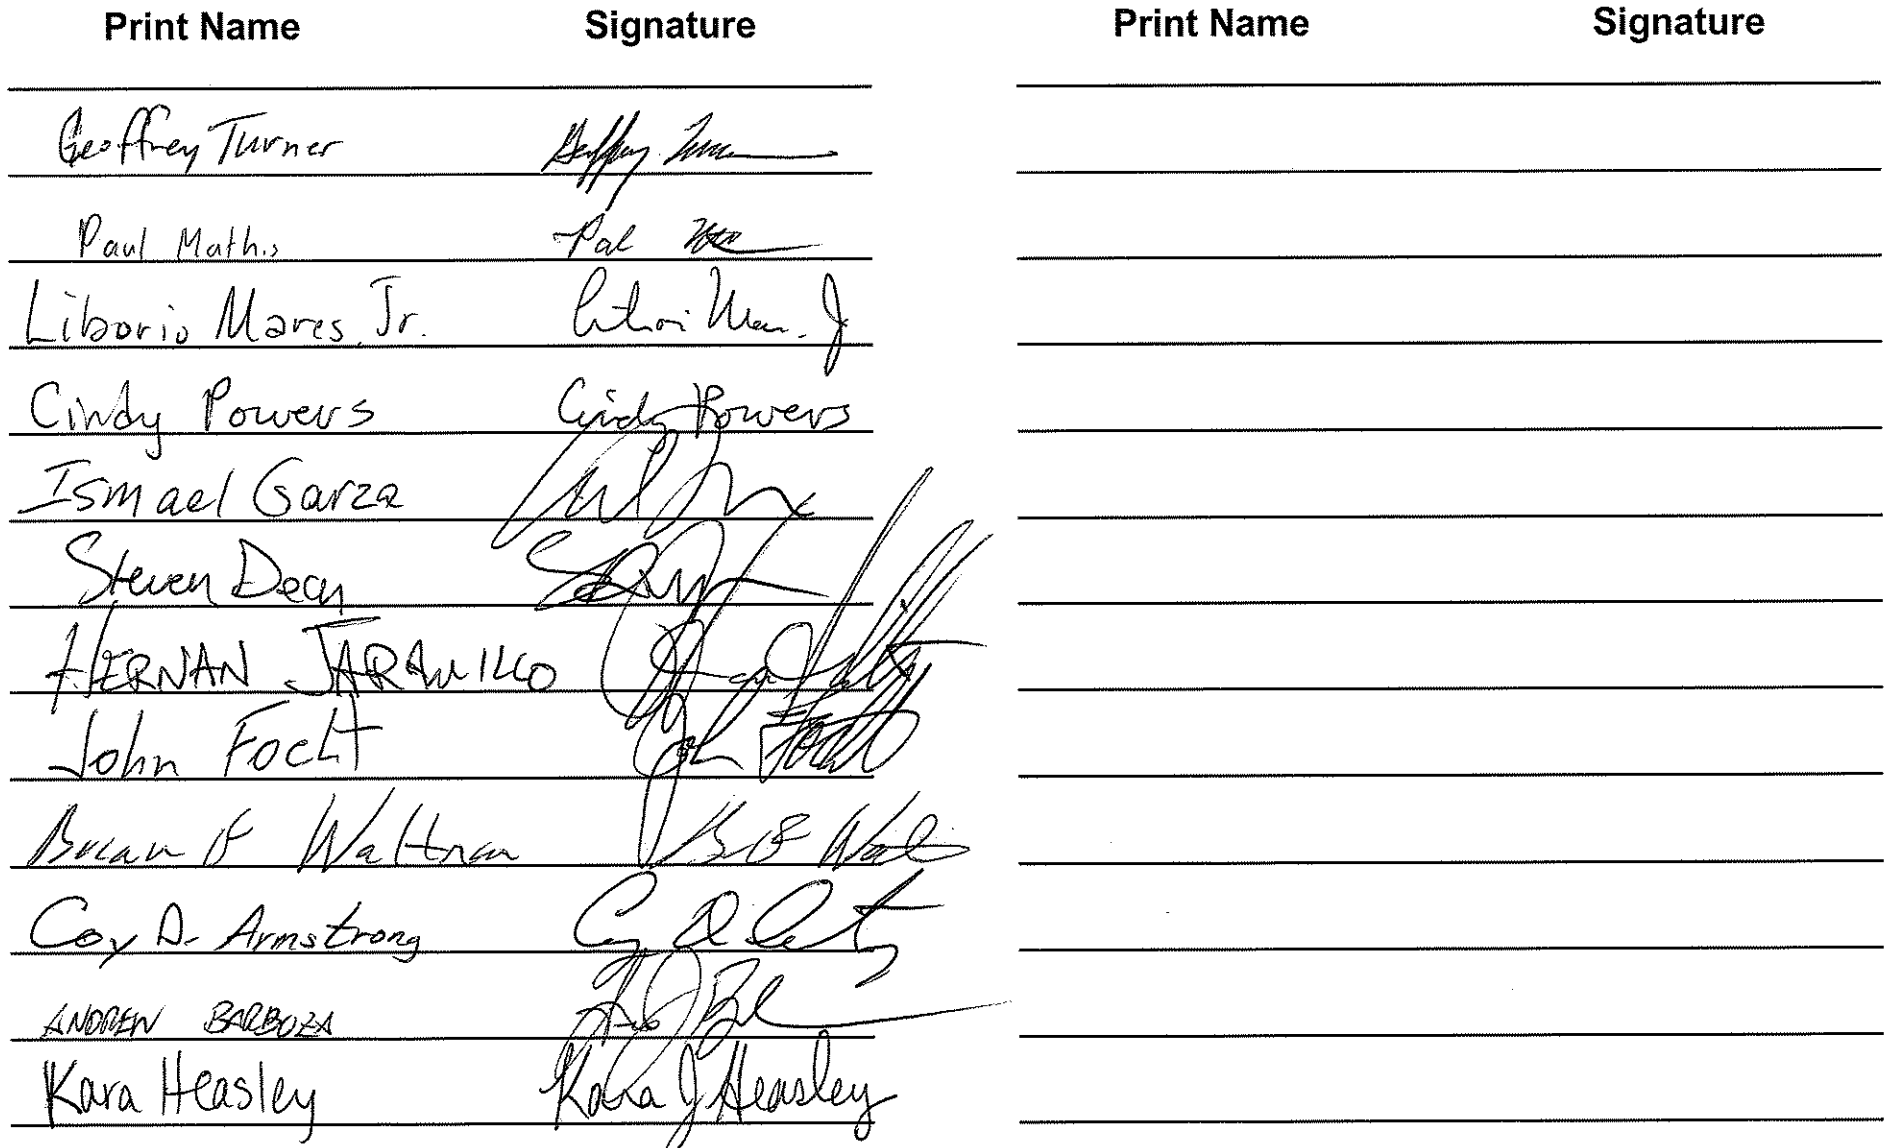 Print Name Signature Print Name Signature
Geoffrey Turner Geoffrey Turner
Paul Mathis Paul
Liborio Mares, Jr.
Cindy Powers Cindy Powers
Ismael Garza
Steven Dean
HERNAN JARAMILLO
John Focht John Focht
Brian E Waltman
Coy D. Armstrong
ANDREW BARBOZA
Kara Heasley Kara J Heasley